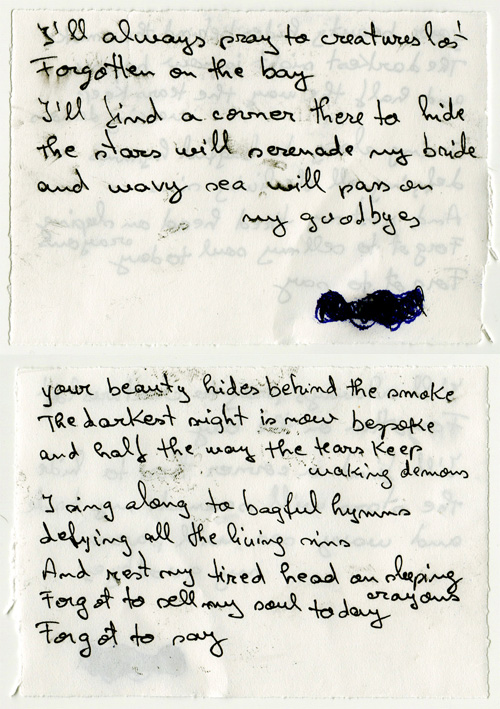 I'll always pray to creatures lost
Forgotten on the bay
I'll find a corner there to hide
the stars will serenade my bride
and wavy sea will pass on
my goodbyes
your beauty hides behind the smoke
The darkest night is now bespoke
and half the way the tears keep
waking demons
I sing along to bagful hymns
defying all the living sins
And rest my tired head on sleeping
crayons
Forgot to sell my soul today
Forgot to say